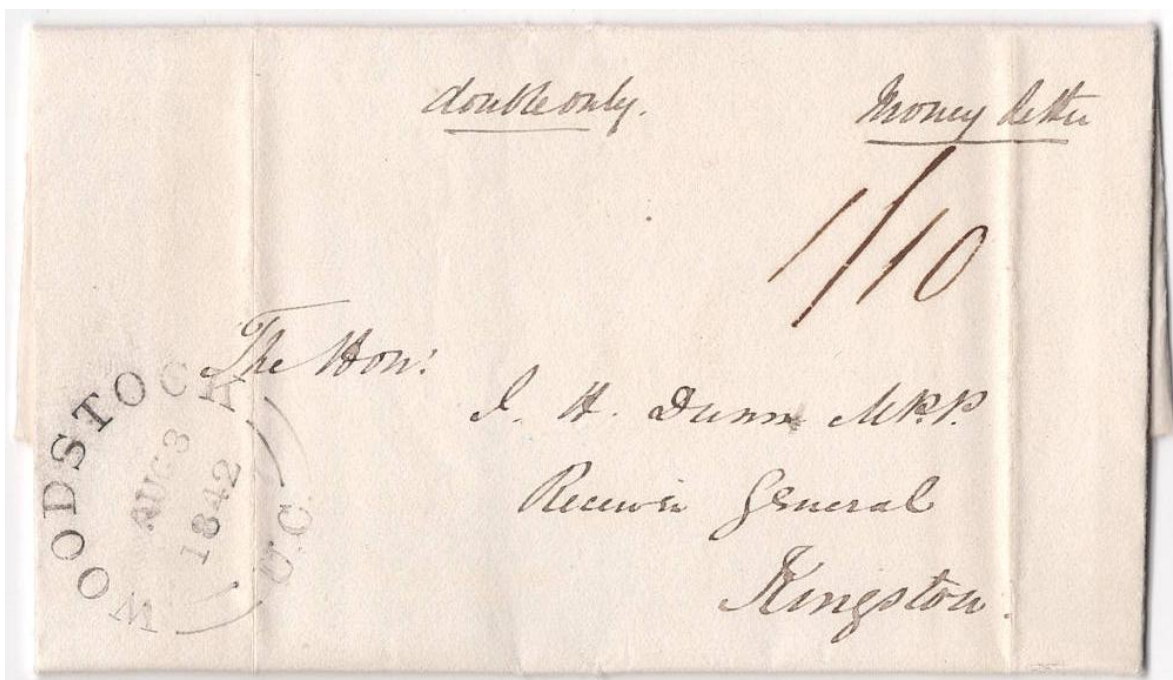 double only.
Money Letter
1/10
The Hon:
J. H. Dunn M.P.P.
Receiver General
Kingston.
WOODSTOCK
AUG 3
1842
U.C.